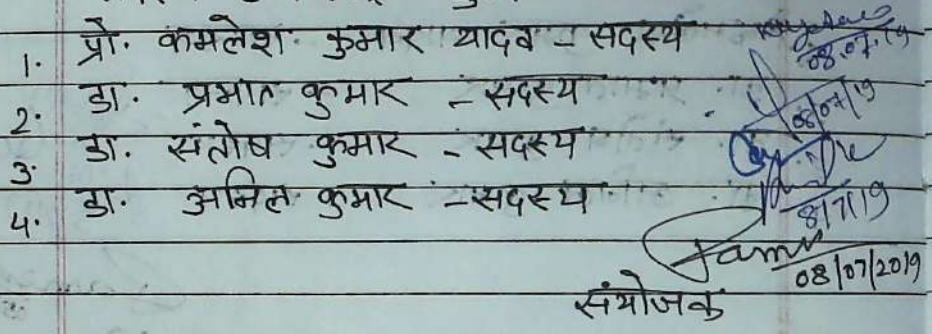 1. प्रो. कमलेश कुमार यादव - सदस्य 08.07.19
2. डा. प्रभात कुमार - सदस्य 08/07/19
3. डा. संतोष कुमार - सदस्य
4. डा. अनिल कुमार - सदस्य 8/7/19
08/07/2019
संयोजक